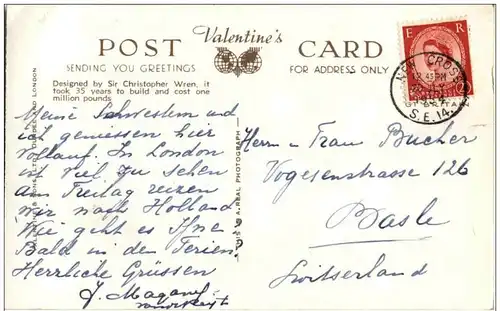 Valentine's
POST CARD
SENDING YOU GREETINGS
FOR ADDRESS ONLY
Designed by Sir Christopher Wren, it
took 35 years to build and cost one
million pounds
Meine Schwestern und
ich geniessen hier
vollauf. In London
ist viel zu sehen
am Freitag reizen
wir nach Holland
Wie geht es Ihnen
Bald in den Ferien.
Herrliche Grüssen
J.
THIS IS A REAL PHOTOGRAPH
Herrn u Frau Bucher
Vogesenstrasse 126
Basle
Switserland
E R
NEW CROSS
12.45 PM
S.E.14.